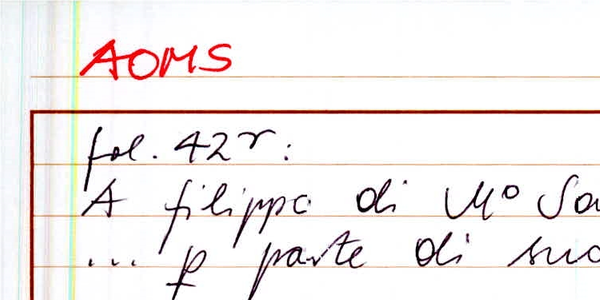 AOMS
fol. 42r:
A filippo di M° Sa
... p parte di suo